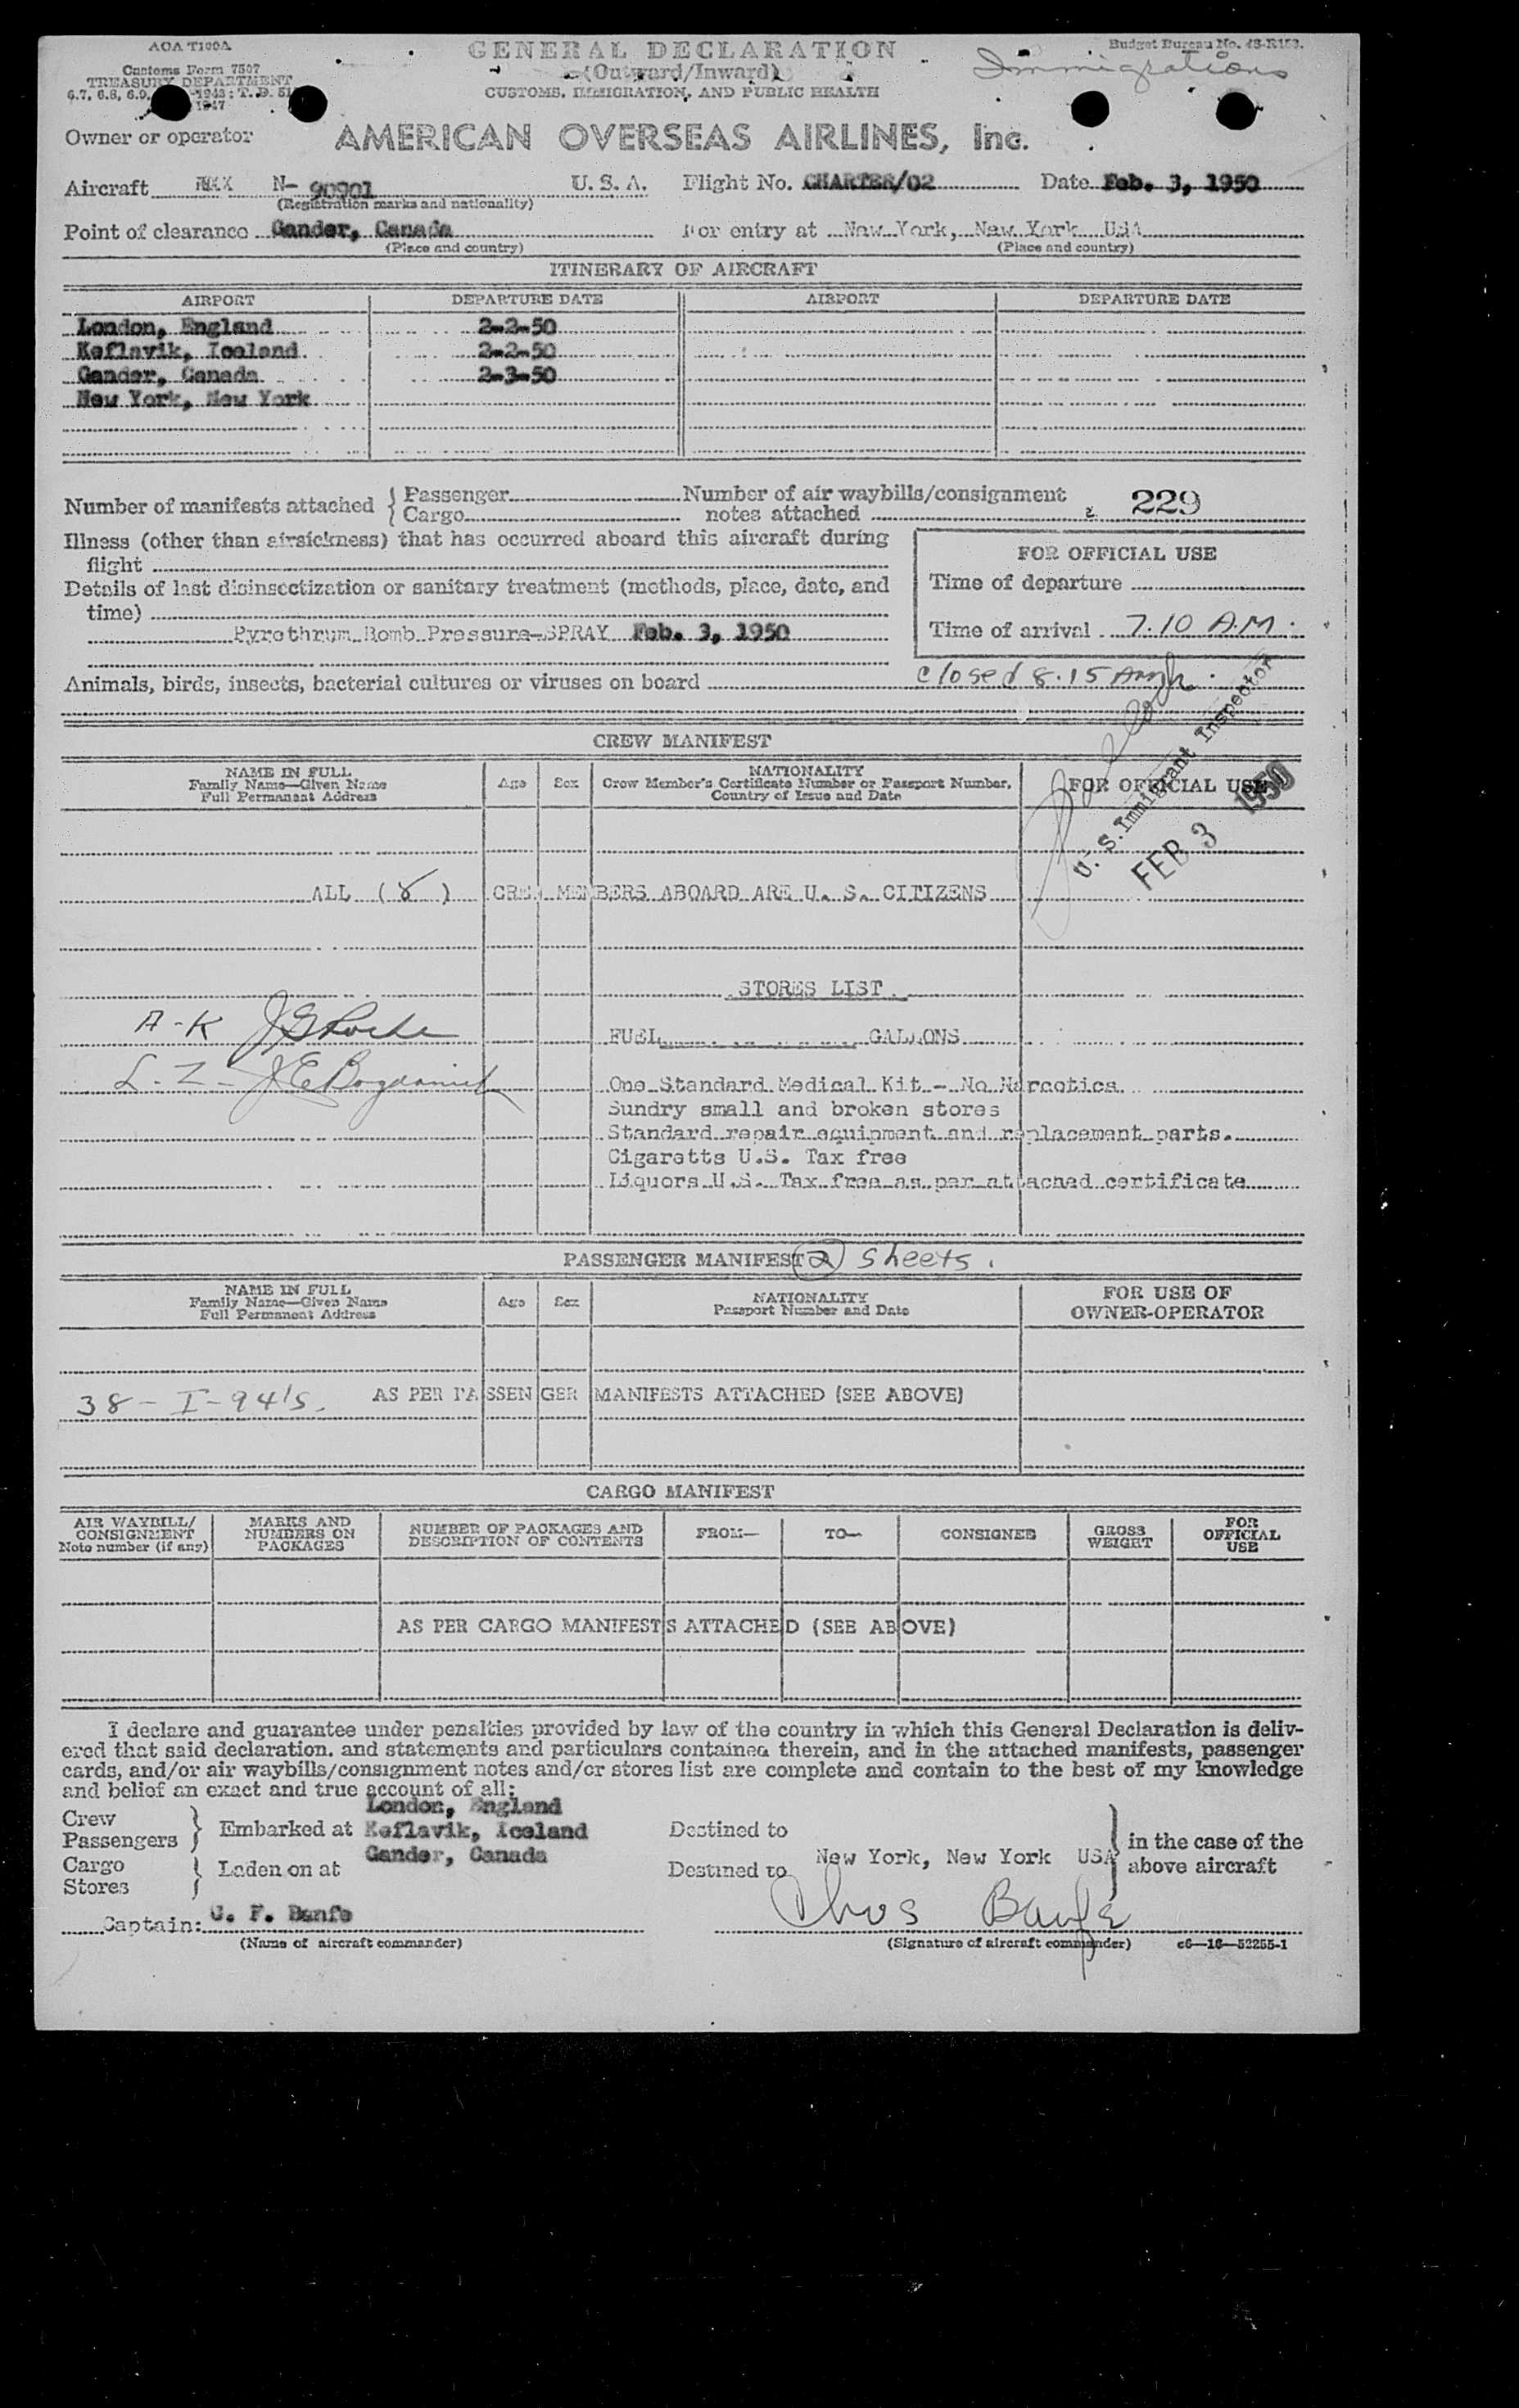 AOA T100A
GENERAL DECLARATION
Budget Bureau No. 48-R189.
(Outward/Inward)
Immigrations
Customs Form 7507
TREASURY DEPARTMENT
CUSTOMS, IMMIGRATION, AND PUBLIC HEALTH
6.7, 6.8, 6.9, 1948; T. D. 51
1947
Owner or operator AMERICAN OVERSEAS AIRLINES, Inc.
Aircraft N- 90901 U. S. A. Flight No. CHARTER/02 Date Feb. 3, 1950
(Registration marks and nationality)
Point of clearance Gander, Canada For entry at New York, New York USA
(Place and country) (Place and country)
ITINERARY OF AIRCRAFT
AIRPORT DEPARTURE DATE AIRPORT DEPARTURE DATE
London, England 2-2-50
Keflavik, Iceland 2-2-50
Gander, Canada 2-3-50
New York, New York
Number of manifests attached { Passenger Number of air waybills/consignment
Cargo notes attached 229
Illness (other than airsickness) that has occurred aboard this aircraft during
flight
FOR OFFICIAL USE
Details of last disinsectization or sanitary treatment (methods, place, date, and
time)
Time of departure
Pyrethrum Bomb Pressure-SPRAY Feb. 3, 1950
Time of arrival 7.10 A.M.
Animals, birds, insects, bacterial cultures or viruses on board
closed 8.15 AM
U. S. Immigrant Inspector
FEB 3 1950
CREW MANIFEST
NAME IN FULL
Family Name—Given Name
Full Permanent Address
Age Sex
NATIONALITY
Crew Member's Certificate Number or Passport Number,
Country of Issue and Date
FOR OFFICIAL USE
ALL (8) CREW MEMBERS ABOARD ARE U. S. CITIZENS
STORES LIST
A-K
FUEL GALLONS
L-Z-
One Standard Medical Kit - No Narcotics
Sundry small and broken stores
Standard repair equipment and replacement parts.
Cigaretts U.S. Tax free
Liquors U.S. Tax free as per attached certificate
PASSENGER MANIFEST 2 sheets.
NAME IN FULL
Family Name—Given Name
Full Permanent Address
Age Sex
NATIONALITY
Passport Number and Date
FOR USE OF
OWNER-OPERATOR
38-I-94's. AS PER PASSENGER MANIFESTS ATTACHED (SEE ABOVE)
CARGO MANIFEST
AIR WAYBILL/
CONSIGNMENT
Note number (if any)
MARKS AND
NUMBERS ON
PACKAGES
NUMBER OF PACKAGES AND
DESCRIPTION OF CONTENTS
FROM—
TO—
CONSIGNEE
GROSS
WEIGHT
FOR
OFFICIAL
USE
AS PER CARGO MANIFESTS ATTACHED (SEE ABOVE)
I declare and guarantee under penalties provided by law of the country in which this General Declaration is deliv-
ered that said declaration, and statements and particulars contained therein, and in the attached manifests, passenger
cards, and/or air waybills/consignment notes and/or stores list are complete and contain to the best of my knowledge
and belief an exact and true account of all:
London, England
Crew
Passengers } Embarked at Keflavik, Iceland Destined to
Gander, Canada
Cargo
Stores } Laden on at Destined to New York, New York USA
in the case of the
above aircraft
Captain: C. F. Banfe Chas Banfe
(Name of aircraft commander) (Signature of aircraft commander) c6—16—52255-1